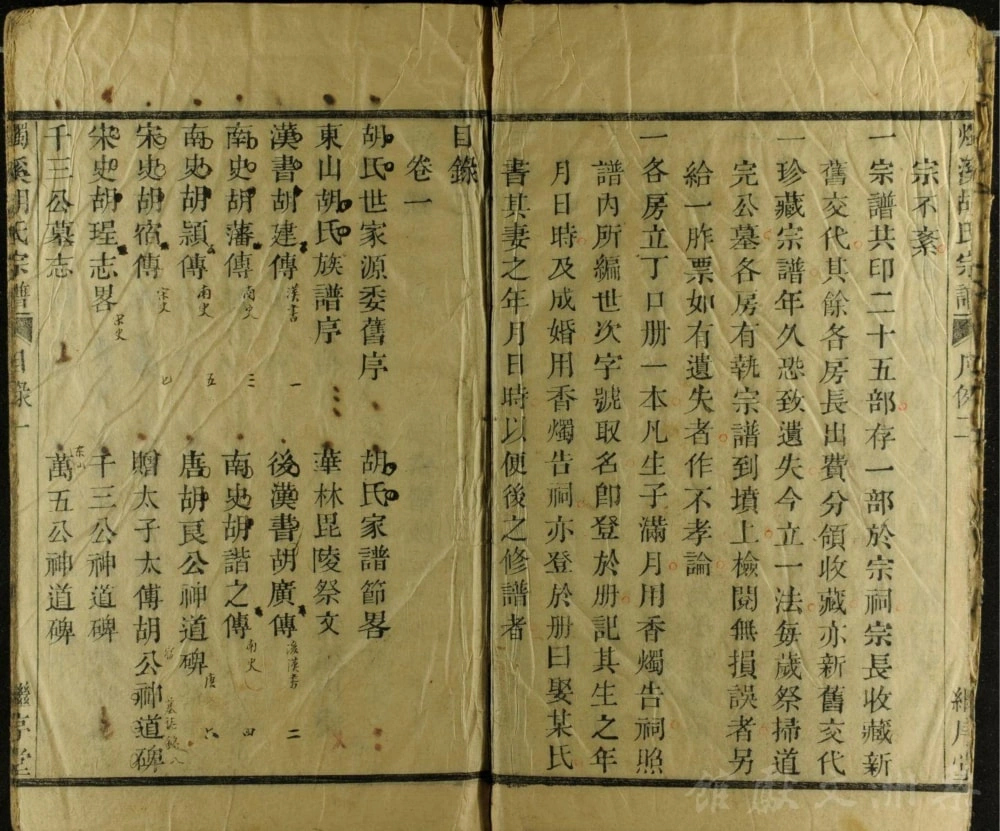 宗不紊
一宗譜共印二十五部存一部於宗祠宗長收藏新
舊交代其餘各房長出費分領收藏亦新舊交代
一珍藏宗譜年久恐致遺失今立一法每歲祭掃道
完公墓各房有執宗譜到墳上檢閱無損誤者另
給一胙票如有遺失者作不孝論
一各房立丁口册一本凡生子滿月用香燭告祠照
譜內所編世次字號取名即登於册記其生之年
月日時及成婚用香燭告祠亦登於册曰娶某氏
書其妻之年月日時以便後之修譜者
目錄
卷一
胡氏世家源委舊序 胡氏家譜節畧
東山胡氏族譜序 華林毘陵祭文
漢書胡建傳 漢書 一 後漢書胡廣傳 後漢書 二
南史胡藩傳 南史 三 南史胡諧之傳 南史 四
南史胡頴傳 南史 五 唐胡良公神道碑 唐 六
宋史胡宿傳 宋史 七 贈太子太傅胡公神道碑
宋史胡珵志畧 宋史 千三公神道碑
千三公墓志 萬五公神道碑
燭溪胡氏宗譜 目錄 一 繼序堂